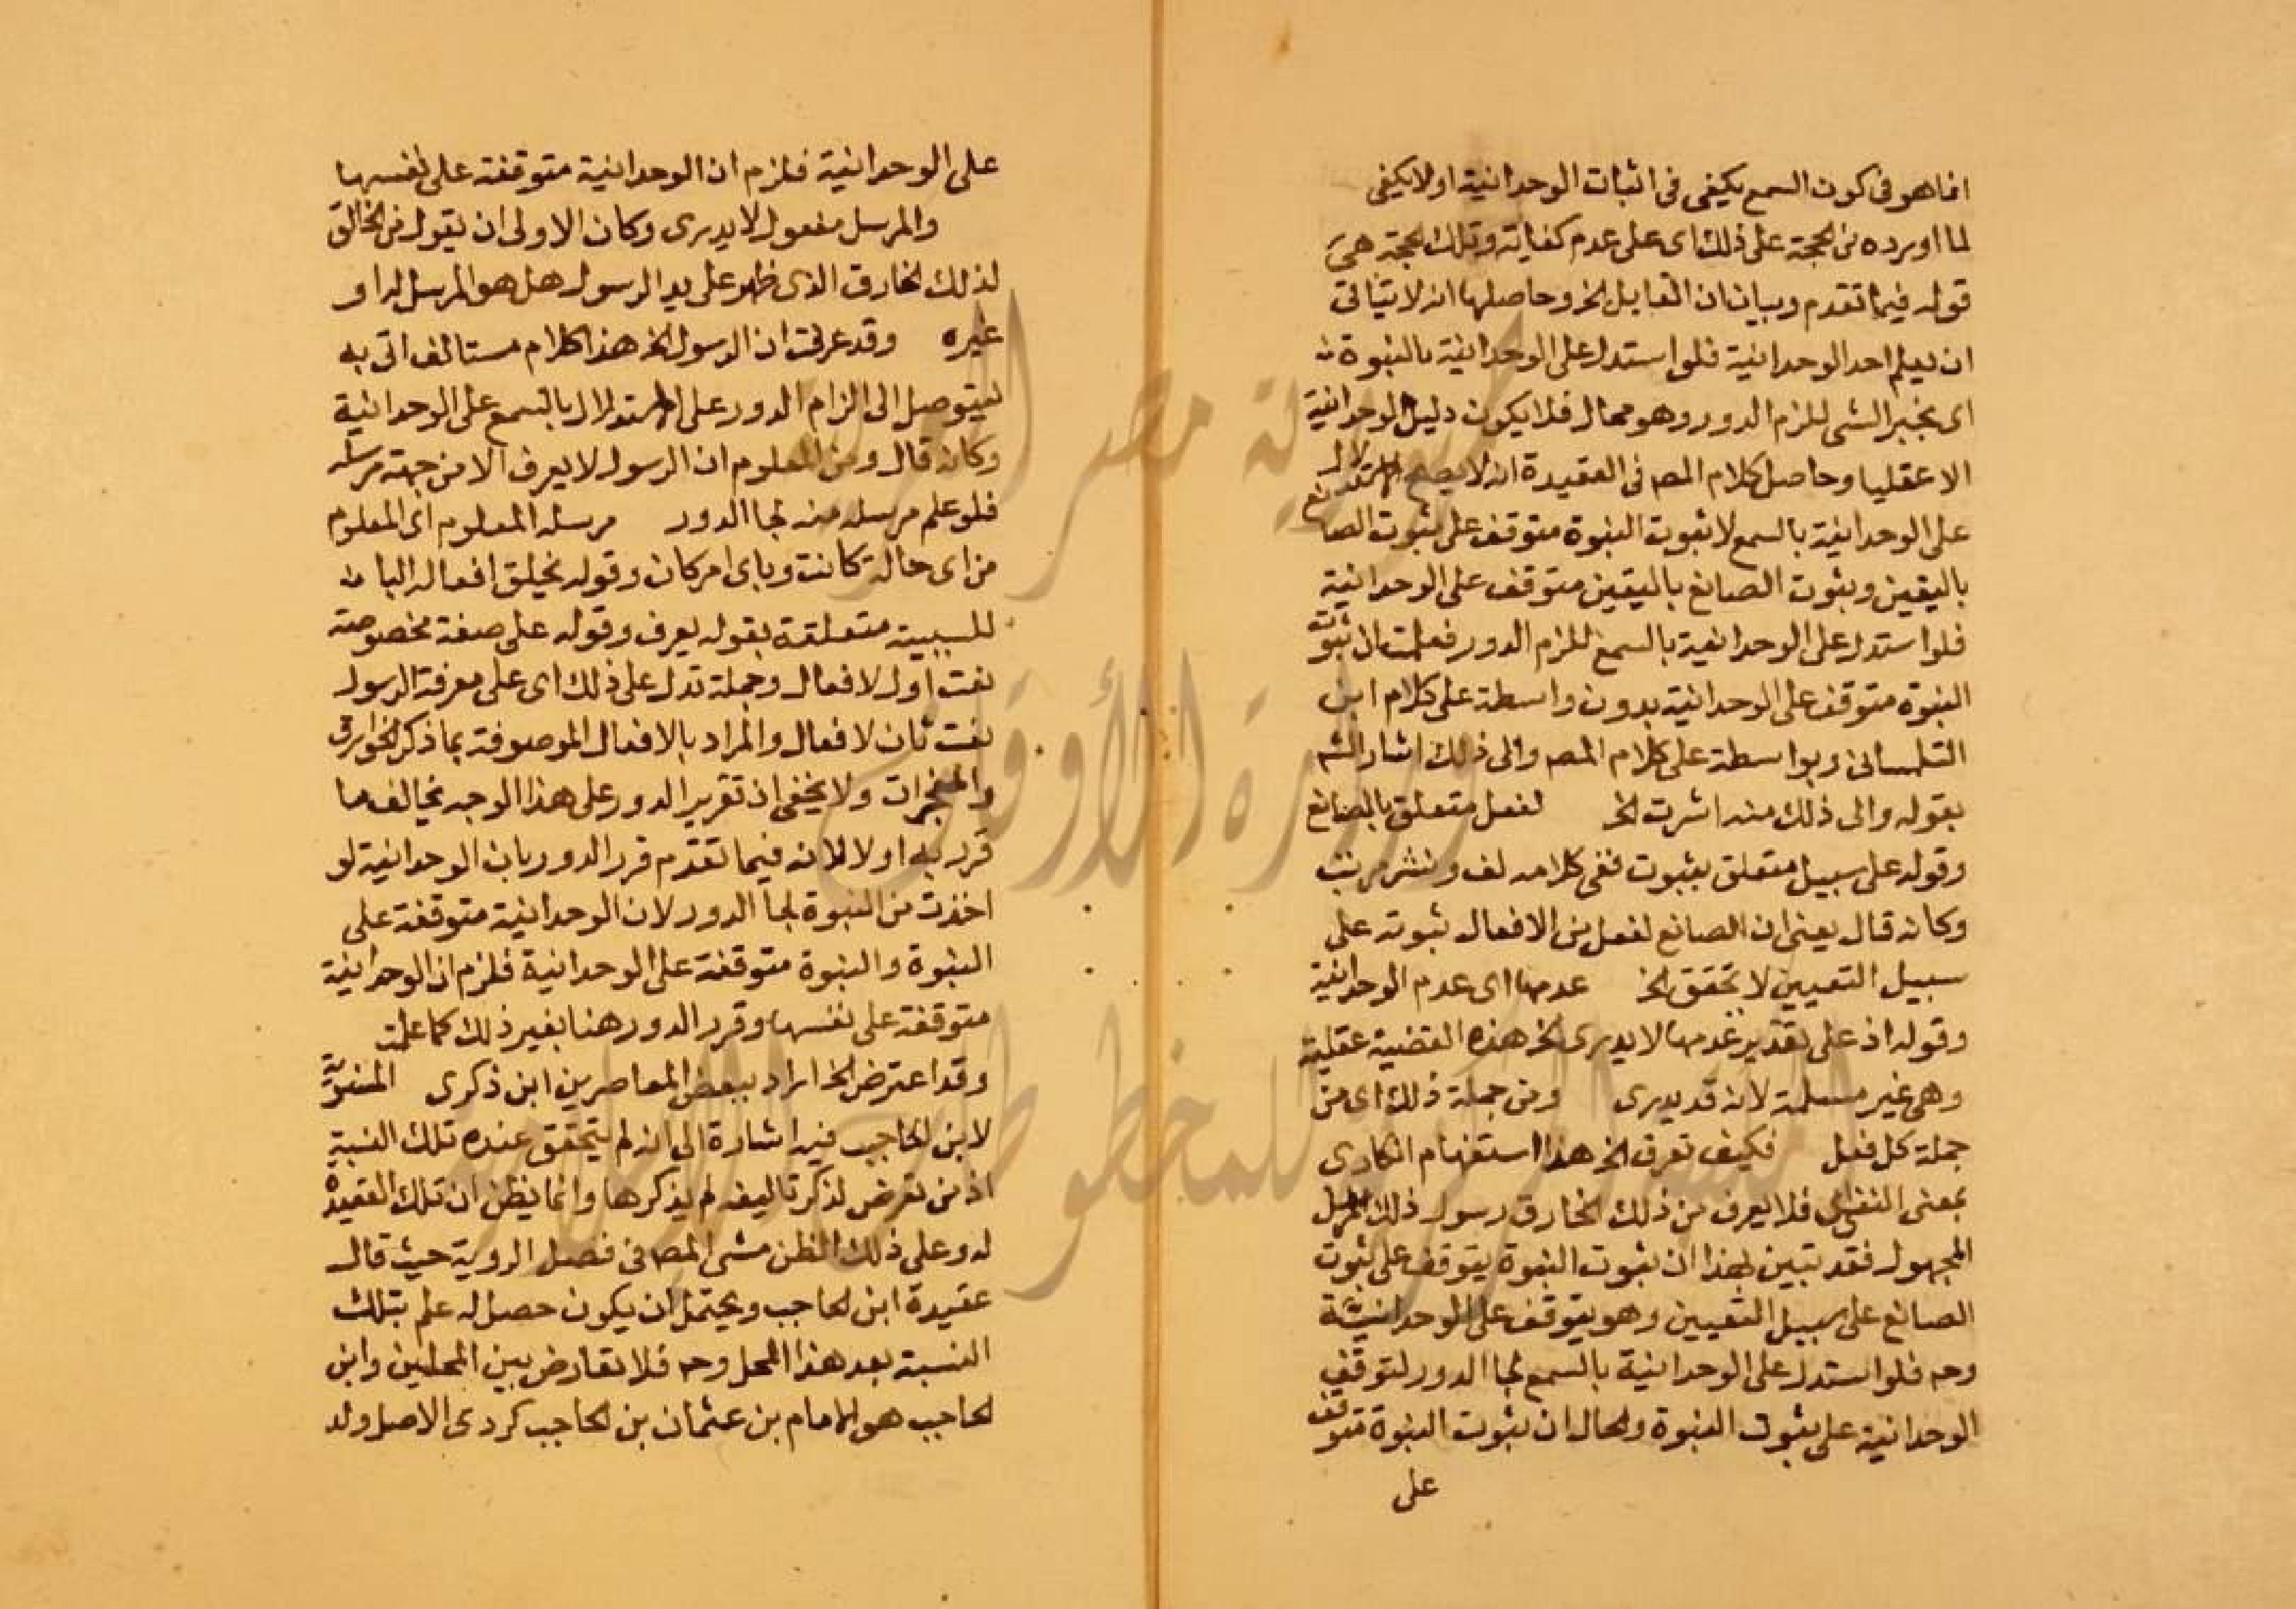 انما هو فى كون السمع يكفى فى اثبات الوحدانية او لا يكفى
لما اورده من الحجة على ذلك اى على عدم كفايته وتلك الحجة هى
قوله فيما تقدم وبيان ان القايل الخ وحاصلها انه لا يتاتى
ان يعلم احد الوحدانية فلو استدل على الوحدانية بالنبوة
اى بخبر النبى للزم الدور وهو محال فلا يكون دليل الوحدانية
الا عقليا وحاصل كلام المصـ فى العقيدة انه لا يصح الاستدلال
على الوحدانية بالسمع لا ثبوت النبوة متوقف على ثبوت الصانع
باليقين وثبوت الصانع باليقين متوقف على الوحدانية
فلو استدل على الوحدانية بالسمع للزم الدور فعلمت ان ثبوت
النبوة متوقف على الوحدانية بدون واسطة على كلام ابن
التلمسانى وبواسطة على كلام المصـ والى ذلك اشار الشـ
بقوله والى ذلك منه اشرت الخ لفعل متعلق بالصانع
وقوله على سبيل متعلق بثبوت ففى كلامه لف ونشر مرتب
وكانه قال يعنى ان الصانع لفعل من الافعال ثبوته على
سبيل التعيين لا تحقق الخ عدمها اى عدم الوحدانية
وقوله اذ على تقدير عدمها لا يدرى الخ هذه القضية عقلية
وهى غير مسلمة لانه قد يدرى ومن جملة ذلك اى من
جملة كل فعل فكيف تعرف الخ هذا استفهام انكارى
بمعنى النفى اى فلا يعرف من ذلك الخارق رسول ذلك المرسل
المجهول فقد تبين بهذا ان ثبوت النبوة يتوقف على ثبوت
الصانع على سبيل التعيين وهو يتوقف على الوحدانية
وحـ فلو استدل على الوحدانية بالسمع لجا الدور لتوقف
الوحدانية على ثبوت النبوة والحال ان ثبوت النبوة متوقف
على
على الوحدانية فلزم ان الوحدانية متوقفة على نفسها
والمرسل مفعول لا يدرى وكان الاولى ان تقول من الخالق
لذلك الخارق الذى ظهر على يد الرسول هل هو المرسل له او
غيره وقد عرفت ان الرسول الخ هذا كلام مستانف اتى به
ليتوصل الى الزام الدور على الاستدلال بالسمع على الوحدانية
وكانه قال ومن المعلوم ان الرسول لا يعرف الا من جهة مرسله
فلو علم مرسله منه لجا الدور مرسله المعلوم اى المعلوم
من اى حالة كانت وباى امر كان وقوله بخلق افعال البا
للسببية متعلقة بقوله يعرف وقوله على صفة مخصوصة
نعت اول لافعال وجملة تدل على ذلك اى على معرفة الرسول
نعت ثان لافعال والمراد بالافعال الموصوفة بما ذكر الخوارق
والمعجزات ولا يخفى ان تقرير الدور على هذا الوجه يخالف ما
قرر به اولا لانه فيما تقدم قرر الدور بان الوحدانية لو
اخذت من النبوة لجا الدور لان الوحدانية متوقفة على
النبوة والنبوة متوقفة على الوحدانية فلزم ان الوحدانية
متوقفة على نفسها وقرر الدور هنا بغير ذلك كما علمت
وقد اعترض الخ اراد ببعض المعاصرين ابن ذكرى المنسوبة
لابن الحاجب فيه اشارة الى انه لم يتحقق عنده تلك النسبة
اذ من تعرض لذكر تاليفه لم يذكرها وانما يظن ان تلك العقيدة
له وعلى ذلك الظن مشى المصـ فى فصل الروية حيث قال
عقيدة ابن الحاجب ويحتمل ان يكون حصل له علم بتلك
النسبة بعد هذا المحل وحـ فلا تعارض بين المحلين وابن
الحاجب هو الامام بن عثمان بن الحاجب كردى الاصل ولد
جمهورية مصر العربية
وزارة الأوقاف
المكتبة المركزية للمخطوطات الإسلامية